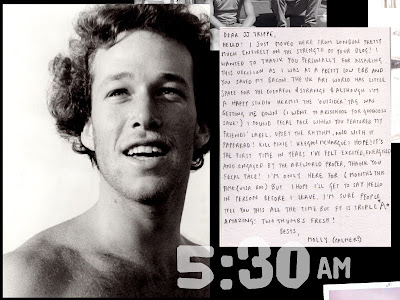 DEAR JJ TRIPPE,
HELLO! I JUST MOVED HERE FROM LONDON PRETTY
MUCH ENTIRELY ON THE STRENGTH OF YOUR BLOG! I
WANTED TO THANK YOU PERSONALLY FOR
THIS DIRECTION AS I WAS AT A PRETTY LOW EBB AND
YOU SAVED MY BACON. THE UK ART WORLD HAS LITTLE
TIME FOR THE COLORFUL & STRANGE & ALTHOUGH I'M
A HAPPY STUDIO HERMIT THE 'OUTSIDER' TAG WAS
GETTING ME DOWN (I WENT TO ARTSCHOOL FOR GOODNESS
SAKE!) I FOUND FECAL FACE WHEN YOU FEATURED MY
FRIENDS' LABEL, UPSET THE RHYTHM, AND WITH IT
PAPERRAD! KILL PIXIE! KEEGAN MCHARGUE! HOPE! IT'S
THE FIRST TIME IN YEARS I'VE FELT EXCITED, ENERGISED
AND ENGAGED BY THE ARTWORLD PROPER, THANK YOU
FECAL FACE! I'M ONLY HERE FOR 6 MONTHS THIS
TIME (VISA) BUT I HOPE I'LL GET TO SAY HELLO
IN PERSON BEFORE I LEAVE. I'M SURE PEOPLE
TELL YOU THIS ALL THE TIME BUT FF IS TRIPLE A*
AMAZING. TWO THUMBS FRESH!
BESTS,
MOLLY (PALMER)
5:30 AM